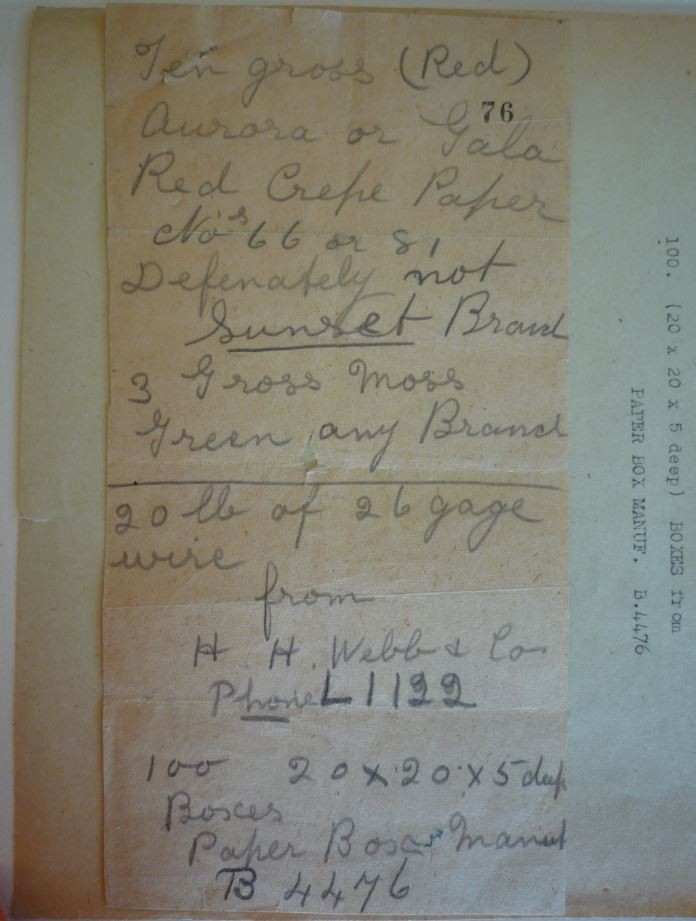 Ten gross (Red)
76
Aurora or Gala
Red Crepe Paper
No's 66 or 81
Defenately not
Sunset Brand
3 Gross Moss
Green any Brand
20 lb of 26 gage
wire
from
H. H. Webb & Co
Phone L1122
100 20 x 20 x 5 deep
Boxes
Paper Box Manuf
B 4476
100. (20 x 20 x 5 deep) BOXES from
PAPER BOX MANUF. B.4476